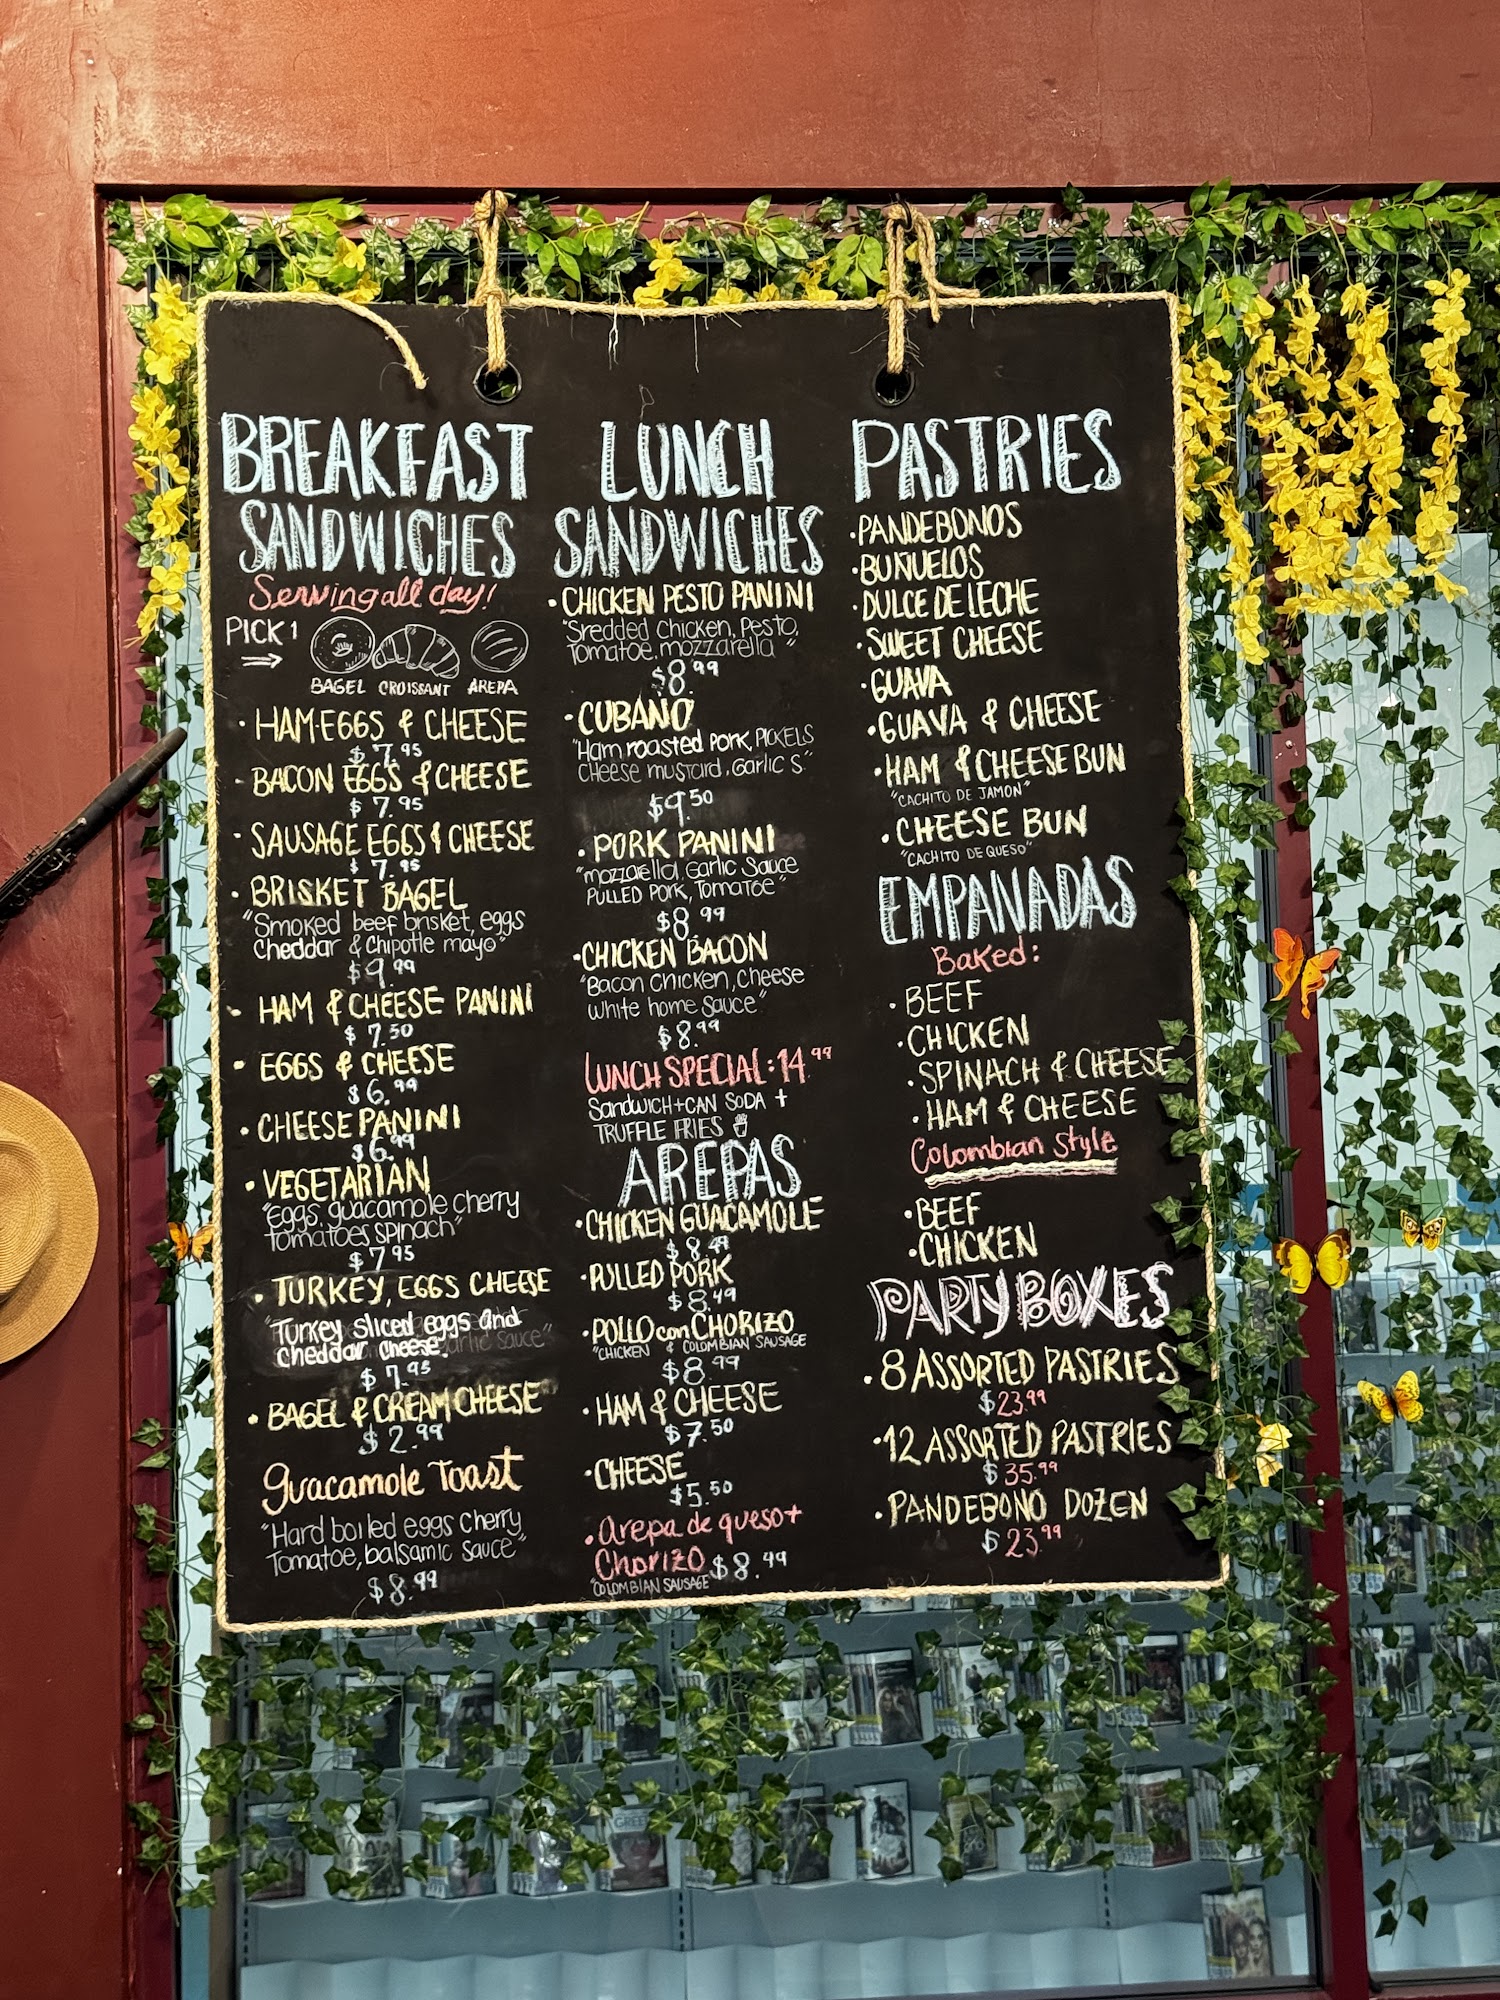 BREAKFAST
SANDWICHES
Serving all day!
PICK 1
BAGEL CROISSANT AREPA
· HAM·EGGS & CHEESE
$7.95
· BACON EGGS & CHEESE
$7.95
· SAUSAGE EGGS & CHEESE
$7.95
· BRISKET BAGEL
"Smoked beef brisket, eggs
cheddar & chipotle mayo"
$9.99
· HAM & CHEESE PANINI
$7.50
· EGGS & CHEESE
$6.99
· CHEESE PANINI
$6.99
· VEGETARIAN
"Eggs, guacamole cherry
tomatoes spinach"
$7.95
· TURKEY, EGGS CHEESE
"Turkey sliced eggs and
cheddar cheese.
$7.95
· BAGEL & CREAM CHEESE
$2.99
guacamole Toast
"Hard boiled eggs cherry
Tomatoe, balsamic sauce"
$8.99
LUNCH
SANDWICHES
· CHICKEN PESTO PANINI
"Sredded chicken, Pesto,
Tomatoe, mozzarella"
$8.99
· CUBANO
"Ham roasted pork, PICKELS
cheese mustard, Garlic S"
$9.50
· PORK PANINI
"mozzarella, Garlic Sauce
PULLED PORK, Tomatoe"
$8.99
· CHICKEN BACON
"Bacon chicken, cheese
white home sauce"
$8.99
LUNCH SPECIAL: 14.99
SandWICH+CAN SODA +
TRUFFLE FRIES
AREPAS
· CHICKEN GUACAMOLE
$8.49
· PULLED PORK
$8.49
· POLLO con CHORIZO
"CHICKEN & COLOMBIAN SAUSAGE
$8.99
· HAM & CHEESE
$7.50
· CHEESE
$5.50
· arepa de queso+
Chorizo $8.49
"COLOMBIAN SAUSAGE
PASTRIES
· PANDEBONOS
· BUÑUELOS
· DULCE DE LECHE
· SWEET CHEESE
· GUAVA
· GUAVA & CHEESE
· HAM & CHEESE BUN
"CACHITO DE JAMON"
· CHEESE BUN
"CACHITO DE QUESO"
EMPANADAS
Baked:
· BEEF
· CHICKEN
· SPINACH & CHEESE
· HAM & CHEESE
Colombian style
· BEEF
· CHICKEN
PARTY BOXES
· 8 ASSORTED PASTRIES
$23.99
· 12 ASSORTED PASTRIES
$35.99
· PANDEBONO DOZEN
$23.99